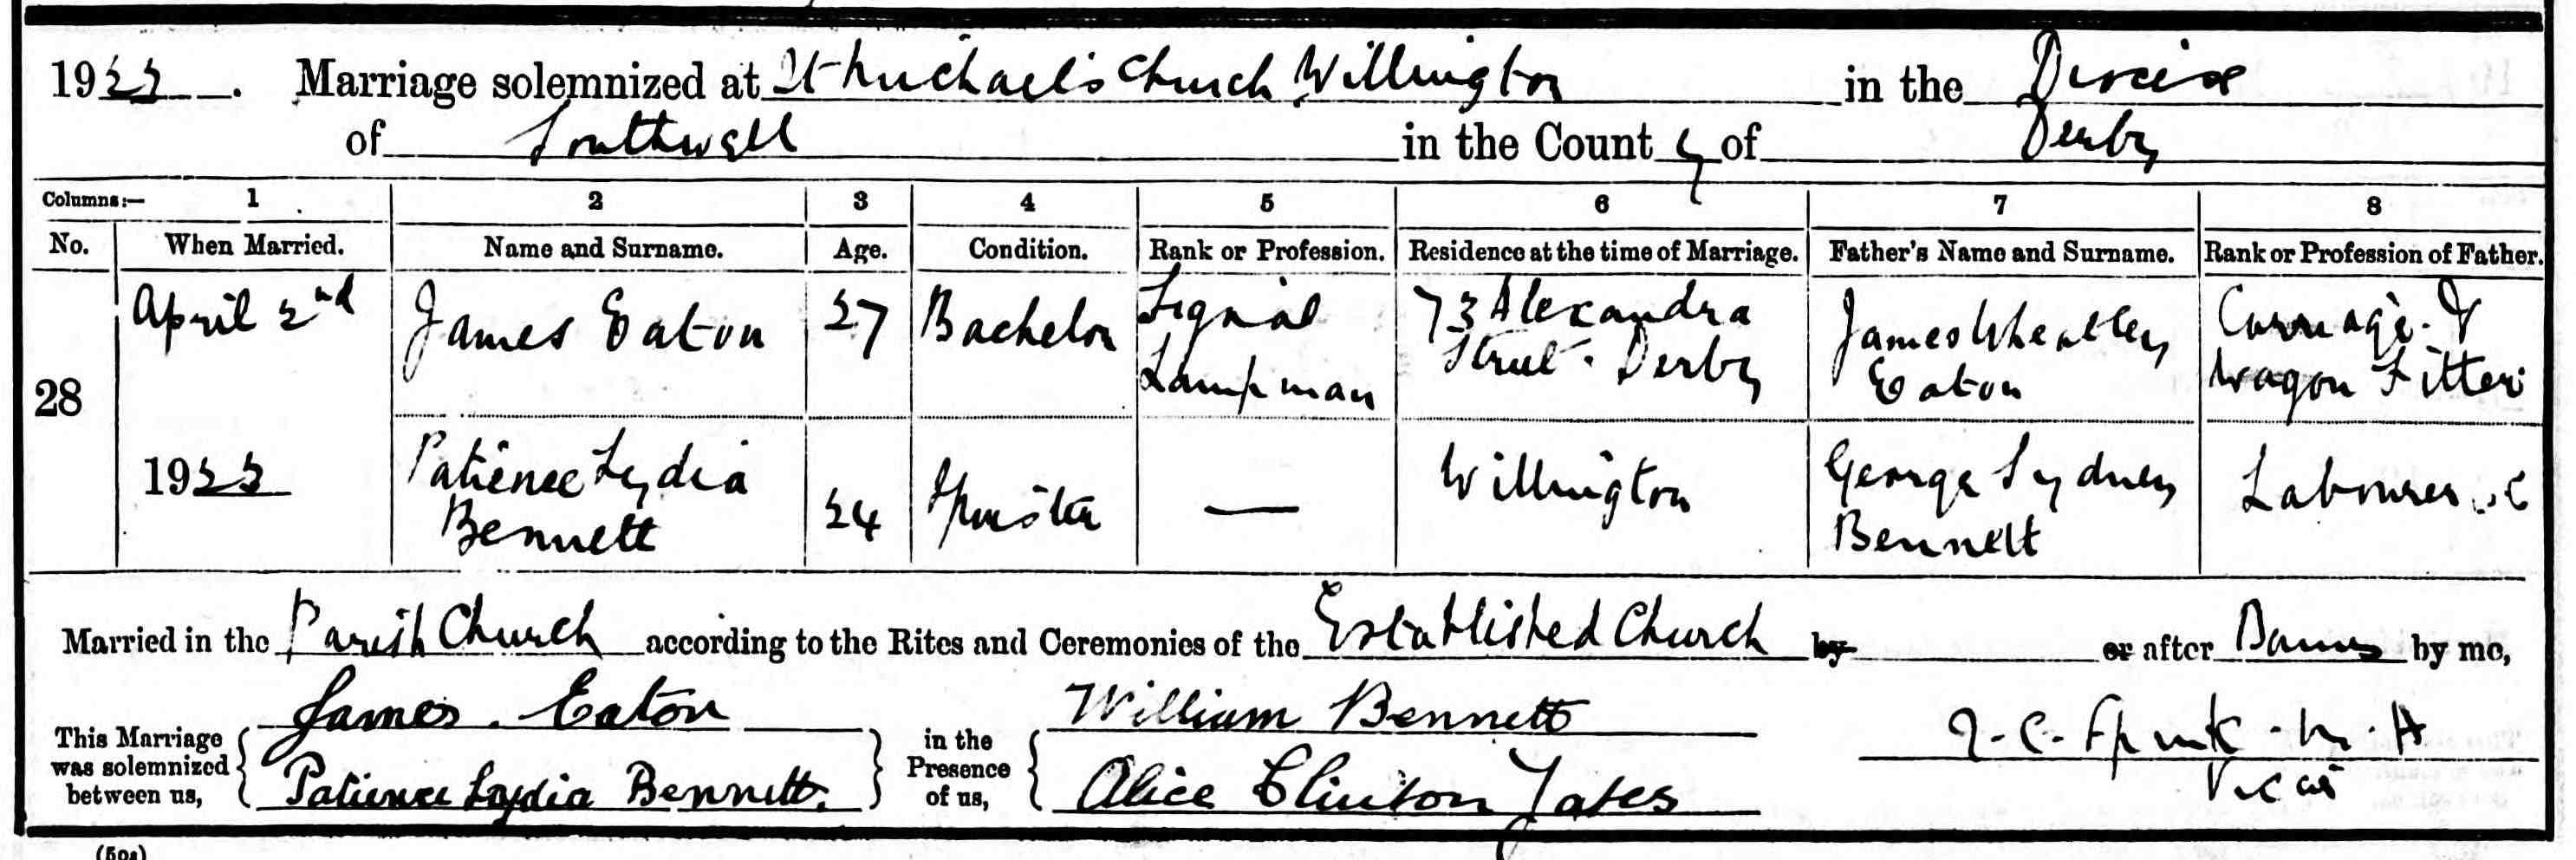 1922. Marriage solemnized at St Michael's Church Willington in the Diocese
of Southwell in the County of Derby
Columns:— 1 2 3 4 5 6 7 8
No. When Married. Name and Surname. Age. Condition. Rank or Profession. Residence at the time of Marriage. Father's Name and Surname. Rank or Profession of Father.
28 April 2nd 1922
James Eaton 27 Bachelor Signal Lampman 73 Alexandra Street. Derby James Wheatley Eaton Carriage & Wagon Fitter
Patience Lydia Bennett 24 Spinster — Willington George Sydney Bennett Labourer
Married in the Parish Church according to the Rites and Ceremonies of the Established Church by or after Banns by me,
This Marriage was solemnized between us,
James Eaton
Patience Lydia Bennett.
in the Presence of us,
William Bennett
Alice Clinton Yates
Vicar
(50s)